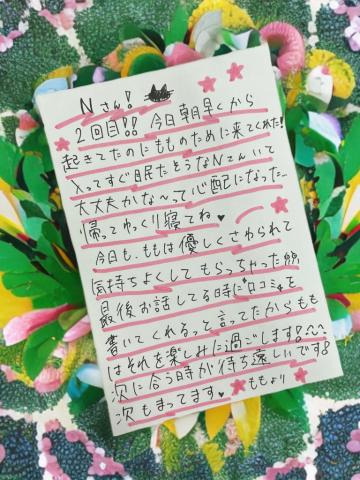 Nさん!
2回目!! 今日朝早くから
起きてたのにもものために来てくれた!
入ってすぐ眠たそうなNさんいて
大丈夫かな~って心配になった..
帰ってゆっくり寝てね♥
今日も、ももは優しくさわられて
気持ちよくしてもらっちゃった
最後お話してる時に口コミを
書いてくれるって言ってたからもも
はそれを楽しみに過ごします!^^
次に会う時が待ち遠しいです!
次もまってます♥ ももより